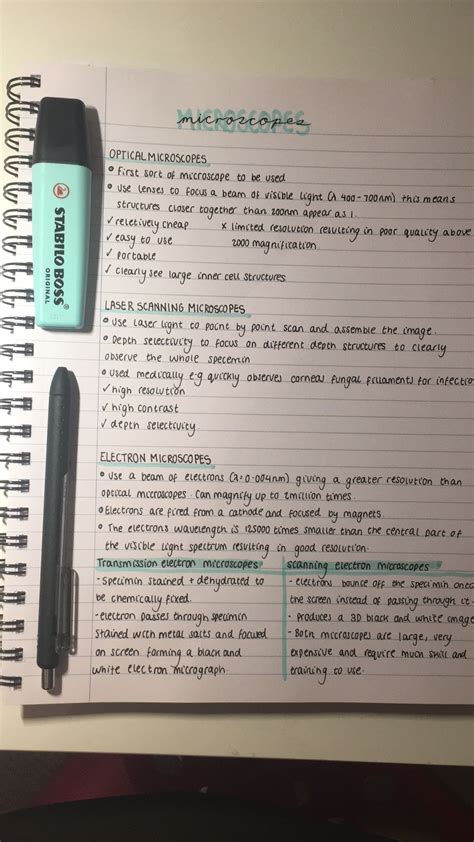 MICROSCOPES
microscopes
STABILO BOSS
ORIGINAL
OPTICAL MICROSCOPES
• First sort of microscope to be used
• Use lenses to focus a beam of visible light (λ 400-700nm) this means
structures closer together than 200nm appear as 1.
✓ reletively cheap x limited resolution resulting in poor quality above
✓ easy to use 2000 magnification.
✓ portable
✓ clearly see large inner cell structures
LASER SCANNING MICROSCOPES
• Use laser light to point by point scan and assemble the image.
• Depth selectivity to focus on different depth structures to clearly
observe the whole specemin
• Used medically e.g quickly observes corneal fungal filaments for infection
✓ high resolution
✓ high contrast
✓ depth selectivity
ELECTRON MICROSCOPES
• Use a beam of electrons (λ=0.004nm) giving a greater resolution than
optical microscopes. Can magnify up to 2million times.
• Electrons are fired from a cathode and focused by magnets.
• The electrons wavelength is 125000 times smaller than the central part of
the visible light spectrum resulting in good resolution.
Transmission electron microscopes
- specimin stained + dehydrated to
be chemically fixed.
- electron passes through specimin
stained with metal salts and focused
on screen forming a black and
white electron micrograph.
scanning electron microscopes
- electrons bounce off the specimin onto
the screen instead of passing through it.
- produces a 3D black and white image
- Both microscopes are large, very
expensive and require much skill and
training to use.